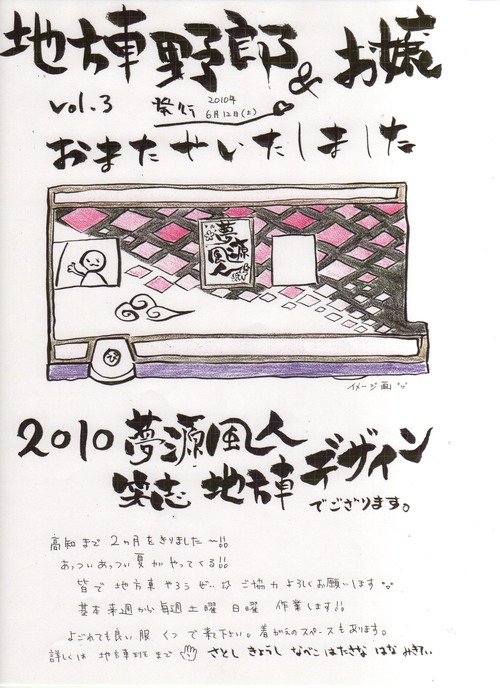 地方車野郎&お嬢
vol.3 発行 2010年
6月12日(土)
おまたせいたしました
夢源風人
イメージ画
2010 夢源風人 デザイン
笑志 地方車
でござります。
高知まで 2ヵ月をきりました〜!!
あっついあっつい夏がやってくる!!
皆で 地方車やろうぜぃ ご協力よろしくお願いします
基本来週から毎週土曜 日曜 作業します!!
よごれても良い服 くつで来て下さい。着がえのスペースもあります。
詳しくは 地方車班まで さとし きょうし なべこ はたきな はな みきてぃ